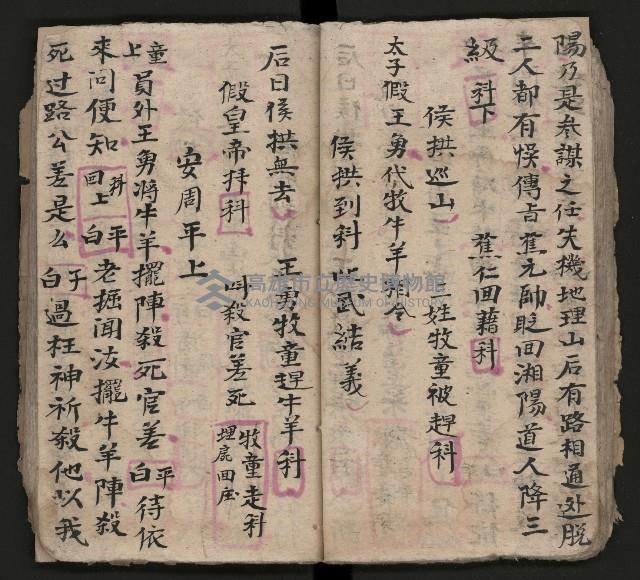 陽乃是参謀之任失機地理山后有路相通逃脱
三人都有悮傳旨蕉元帥貶回湘陽道人降三
級科下 蕉仁回藉科
侯拱巡山 三姓牧童被趕科
太子假王勇代牧牛羊湘令
侯拱到科 柴武結義
后日侯拱無去 王勇牧童趕牛羊科
假皇帝拝科 叫殺官差死 牧童走科 埋屍回庄
安周平上
童上員外王勇将牛羊擺陣殺死官差 平白待依
來问便知 并回上 平白老掘闻汝擺牛羊陣殺
死过路公差是么 子白過枉神祈殺他以我
高雄市立歷史博物館
KAOHSIUNG MUSEUM OF HISTORY